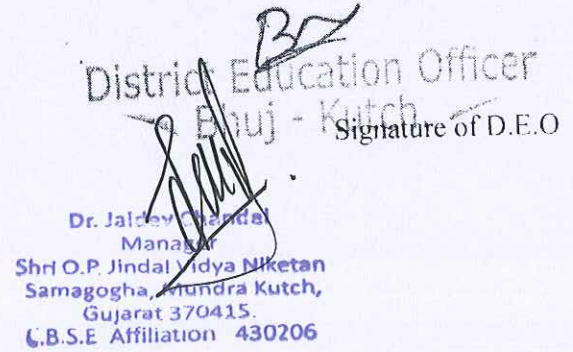 District Education Officer
Bhuj - Kutch.
Signature of D.E.O
Dr. Jaldev Chandal
Manager
Shri O.P. Jindal Vidya Niketan
Samagogha, Mundra Kutch,
Gujarat 370415.
C.B.S.E Affiliation 430206